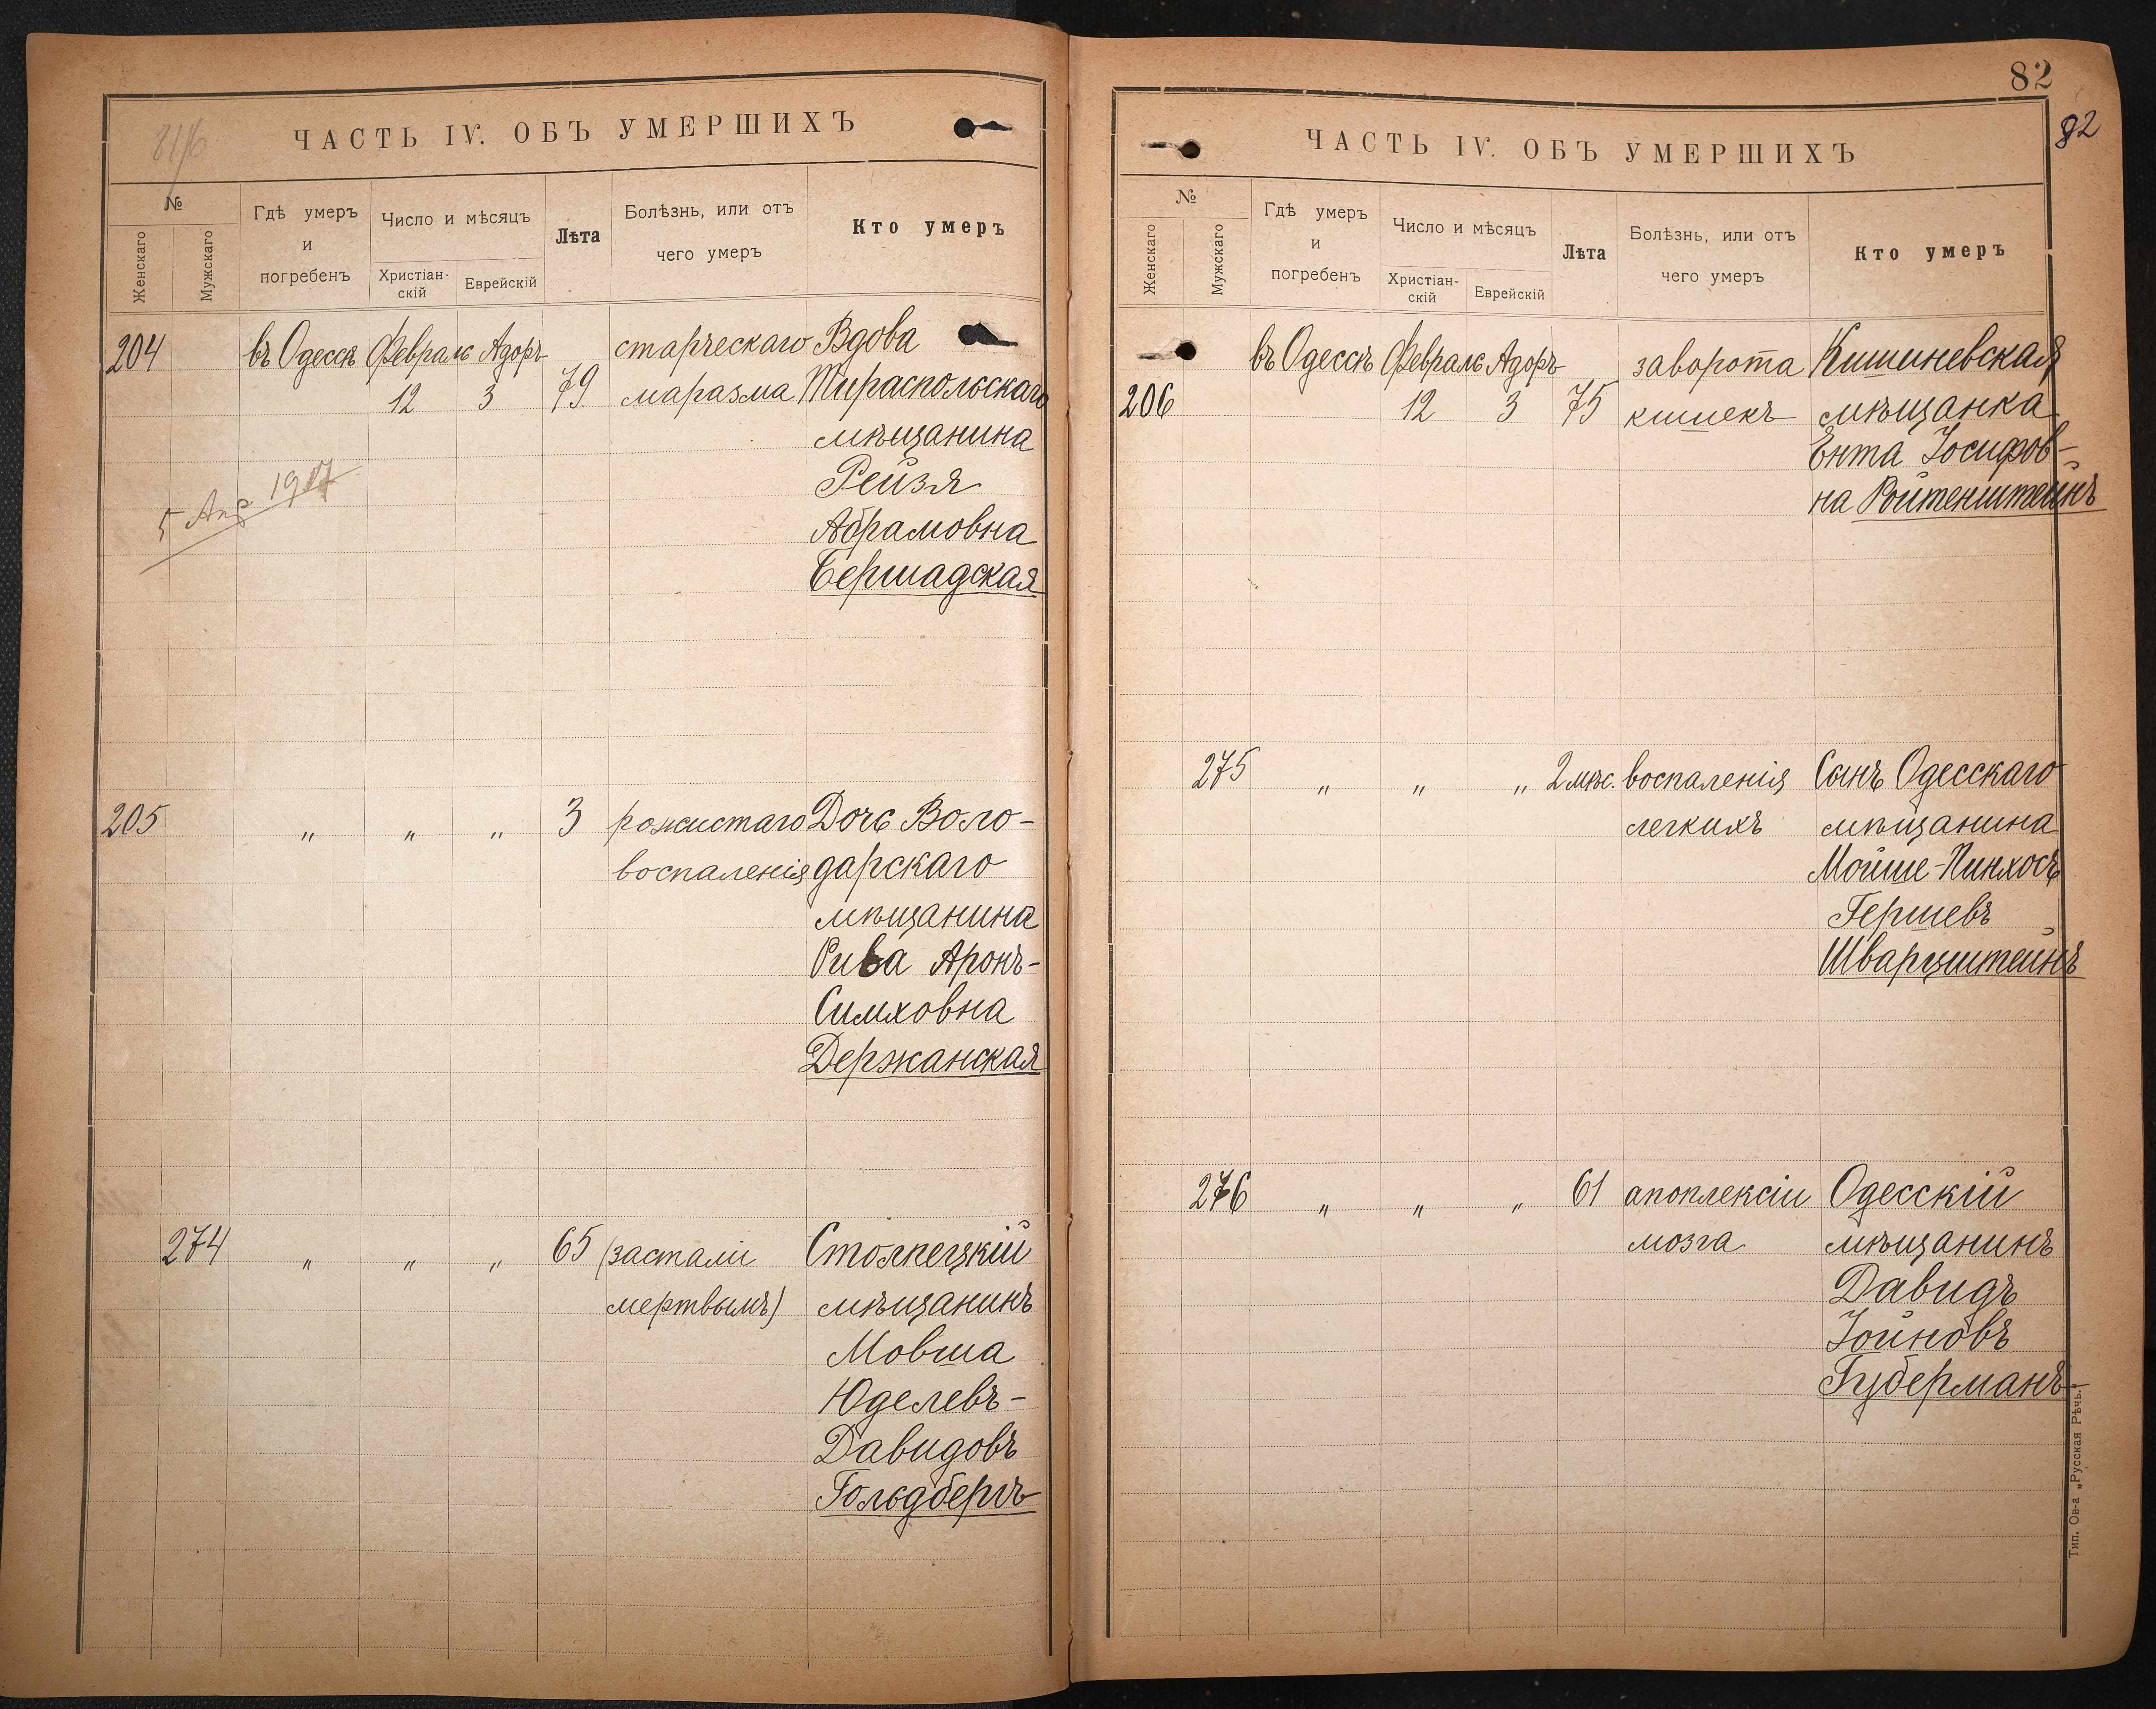 ЧАСТЬ IV. ОБЪ УМЕРШИХЪ
№
Женскаго
Мужскаго
Гдѣ умеръ
и
погребенъ
Число и мѣсяцъ
Христіан-
скій
Еврейскій
Лѣта
Болѣзнь, или отъ
чего умеръ
Кто умеръ
204 въ Одессѣ Февраль Адоръ старческаго Вдова
12 3 79 маразма Тираспольскаго
мѣщанина
Рейзя
Абрамовна
Бершадская
5 Апр 1917
205 " " " 3 рожистаго Дочь Воло-
воспаленія дарскаго
мѣщанина
Рива Аронъ-
Симховна
Держанская
274 " " " 65 (застали Столпецкій
мертвымъ) мѣщанинъ
Мовша
Юделевъ-
Давидовъ
Гольдбергъ
82
82
ЧАСТЬ IV. ОБЪ УМЕРШИХЪ
№
Женскаго
Мужскаго
Гдѣ умеръ
и
погребенъ
Число и мѣсяцъ
Христіан-
скій
Еврейскій
Лѣта
Болѣзнь, или отъ
чего умеръ
Кто умеръ
въ Одессѣ Февраль Адоръ заворота Кишиневская
206 12 3 75 кишекъ мѣщанка
Ента Іосифов-
на Ройтенштейнъ
275 " " " 2 мѣс. воспаленія Сынъ Одесскаго
легкихъ мѣщанина
Мойше-Пинхосъ
Гершевъ
Шварцштейнъ
276 " " " 61 апоплексіи Одесскій
мозга мѣщанинъ
Давидъ
Іойновъ
Губерманъ
Тип. Ов-а „Русская Рѣчь.“